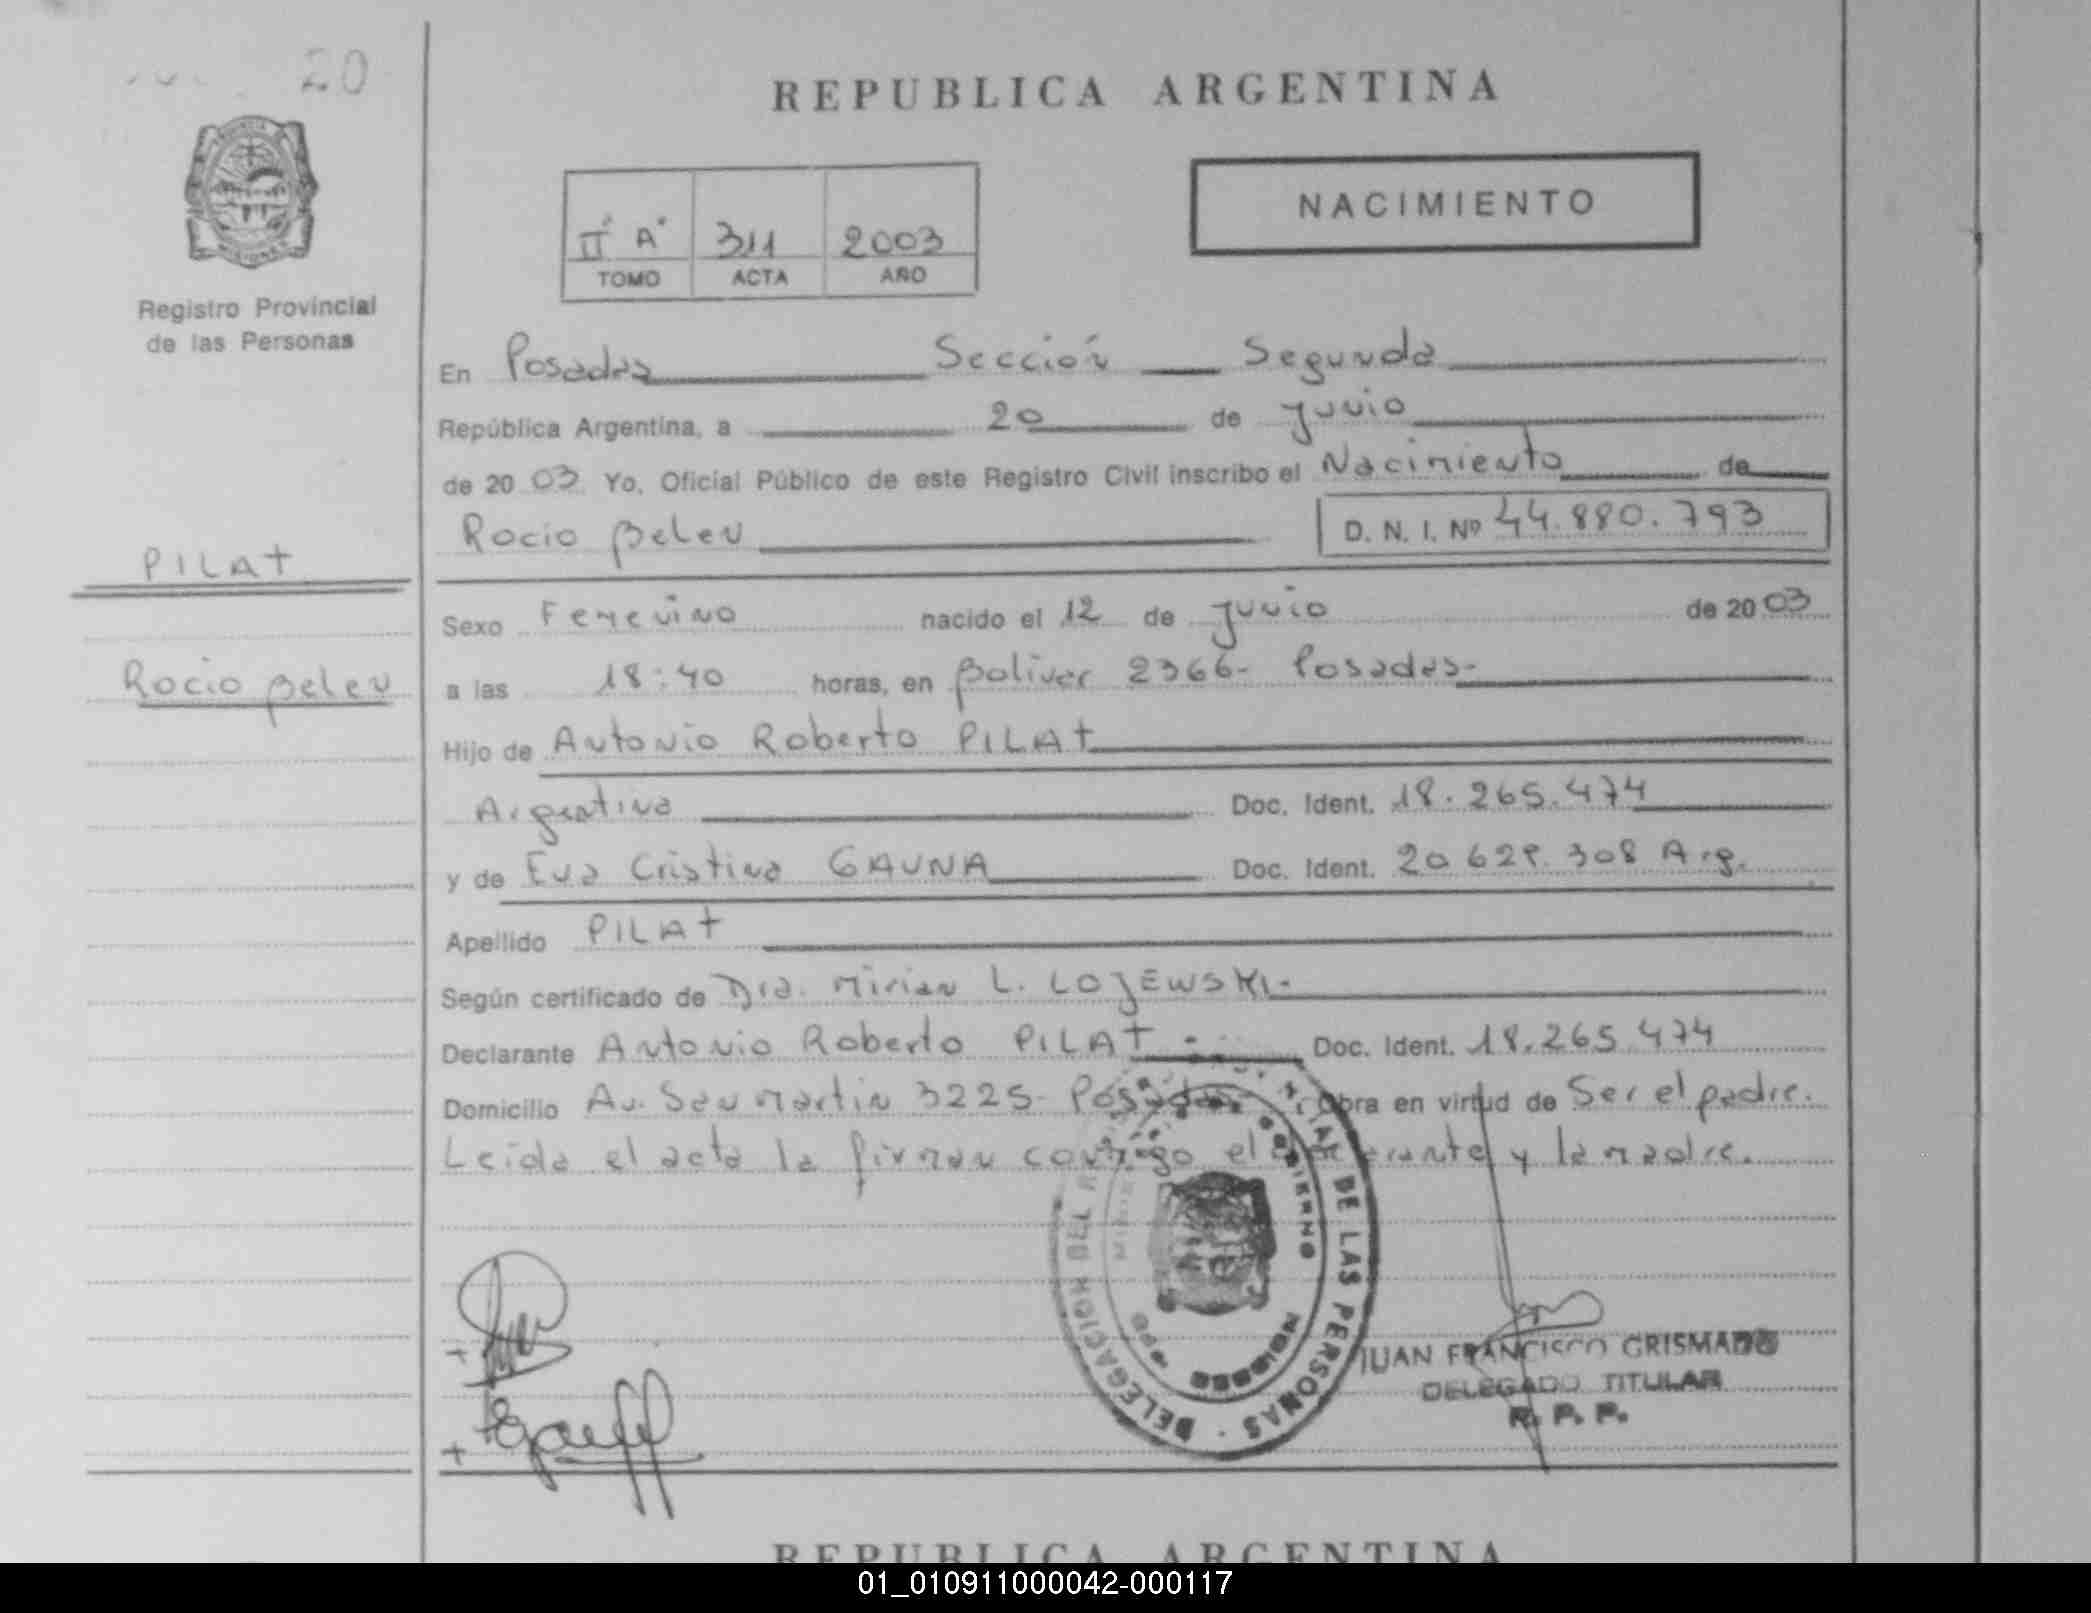 20
REPUBLICA ARGENTINA
NACIMIENTO
II A 311 2003
TOMO ACTA AÑO
Registro Provincial
de las Personas
En Posadas Sección Segunda
República Argentina, a 20 de Junio
de 2003 Yo, Oficial Público de este Registro Civil inscribo el Nacimiento de
Rocio Belen D. N. I. Nº 44.880.793
PILAT
Sexo Femenino nacido el 12 de Junio de 2003
Rocio Belen
a las 18:40 horas, en Bolivar 2366- Posadas-
Hijo de Antonio Roberto PILAT
Argentina Doc. Ident. 18.265.474
y de Eva Cristina GAUNA Doc. Ident. 20.629.308 Arg.
Apellido PILAT
Según certificado de Dra. Mirian L. LOJEWSKI.-
Declarante Antonio Roberto PILAT Doc. Ident. 18.265.474
Domicilio Av. San Martin 3225- Posadas Obra en virtud de Ser el padre.
Leida el acta la firman conmigo el declarante y la madre.
DELEGACION DEL DE LAS PERSONAS
GOBIERNO
JUAN FRANCISCO GRISMADO
DELEGADO TITULAR
R. P. P.
REPUBLICA ARGENTINA
01_010911000042-000117